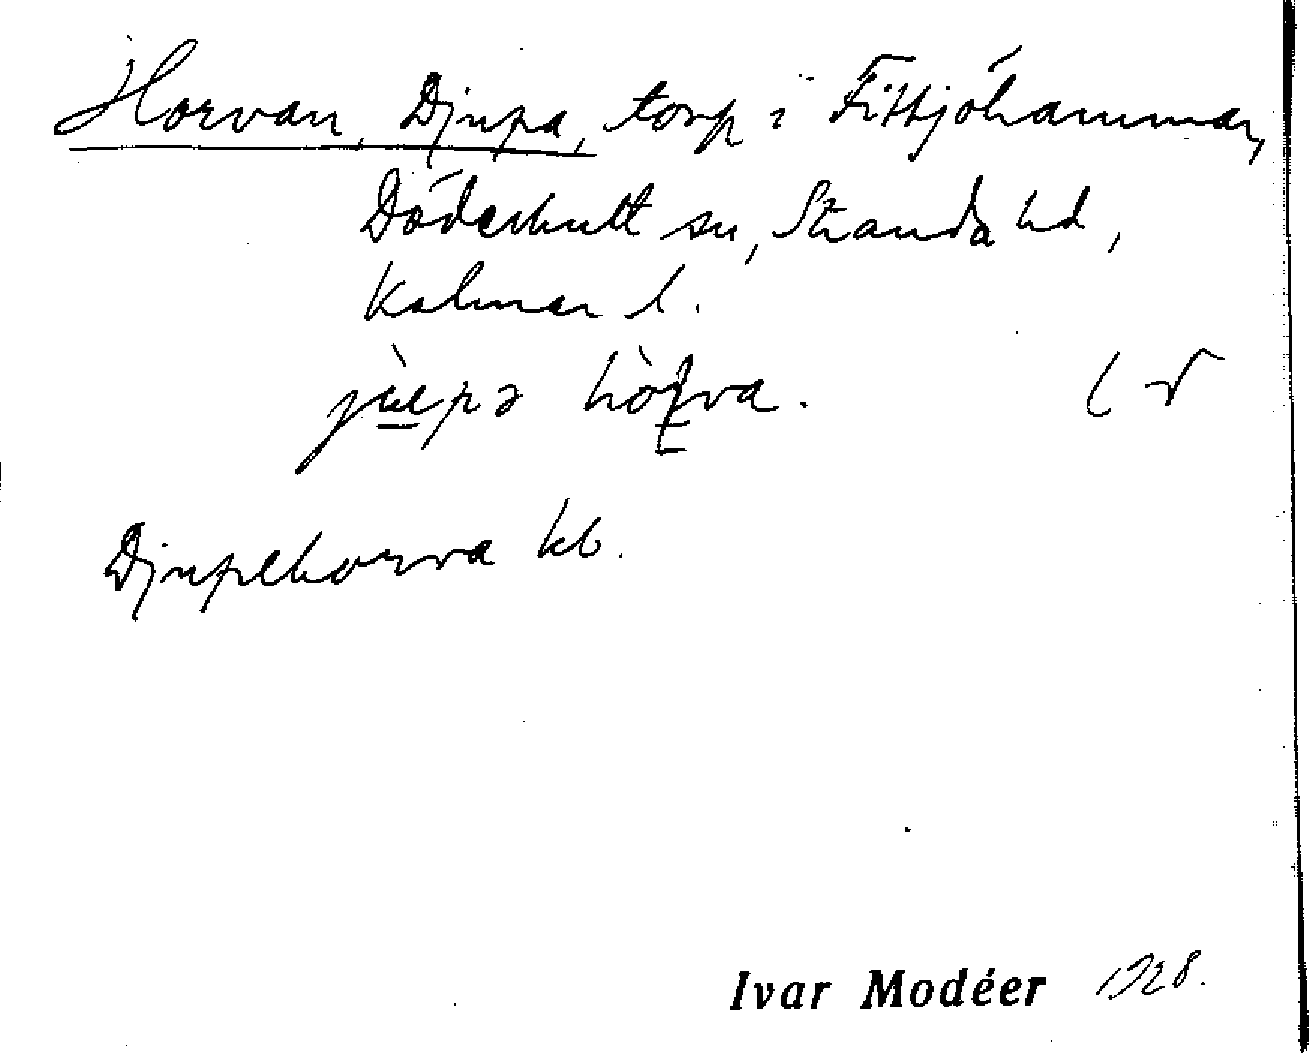 Horvan, Djupa, torp i Fittjöhammar,
Döderhult sn, Stranda hd,
Kalmar l.
Djupehorva kb.
Ivar Modéer 1928.